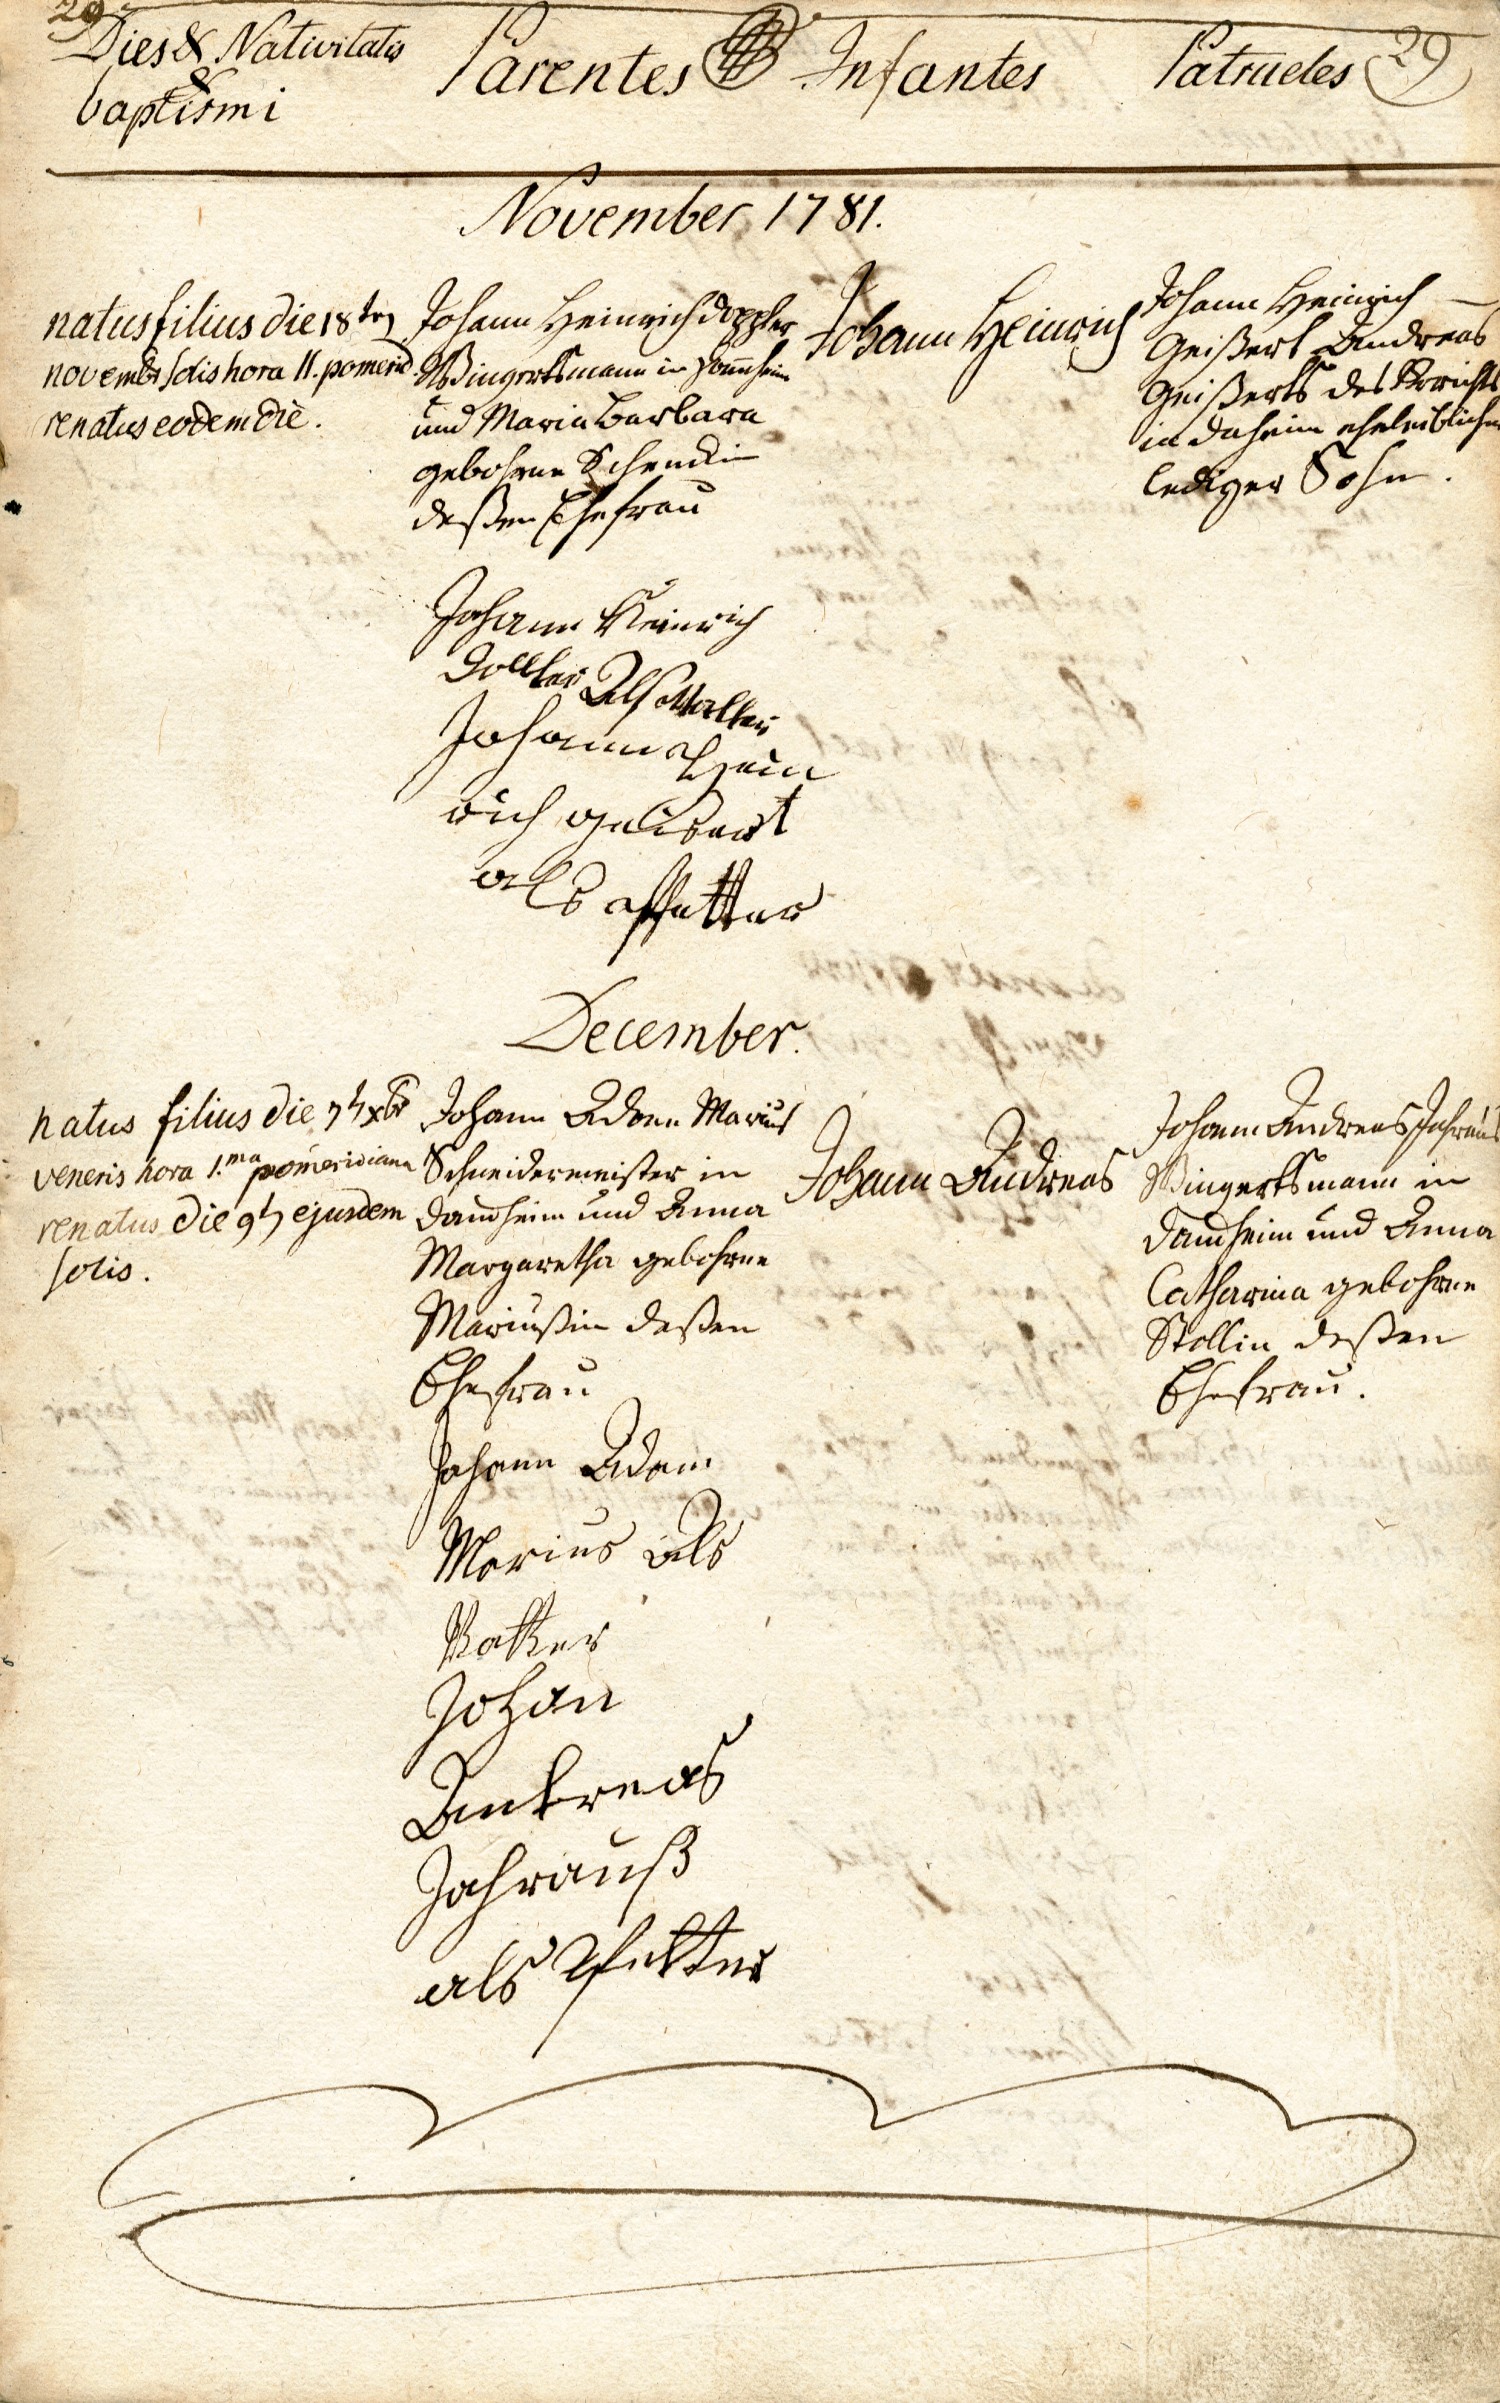 29
Dies & Nativitatis
&
baptismi
Parentes
Infantes
Patrueles
29
November 1781.
natus filius die 18ten
novembr solis hora 11. pomerid
renatus eodem die.
Johann Heinrich Doppler
Wingertsmann in
und Maria Barbara
gebohrne Schenckin
deßen Ehefrau
Johann Heinrich
Johann Heinrich
Geißert Andreas
Geißerts des Gerichts
in daheim eheleiblicher
lediger Sohn.
Johann Heinrich
Als Vatter
Johann Hein
rich geisert
als pfetter
December.
natus filius die 7ten xbr
veneris hora 1.ma pomeridiana
renatus die 9ten ejusdem
solis.
Johann Adam Marius
Schneidermeister in
Dauheim und Anna
Margaretha gebohrne
Mariußin deßen
Ehefrau
Johann Andreas
Johann Andreas Jahraus
Wingertsmann in
Dauheim und Anna
Catharina gebohrne
Stollin deßen
Ehefrau.
Johann Adam
Marius Als
Vatter
Johan
Antreas
Jahrauß
als Pfetter